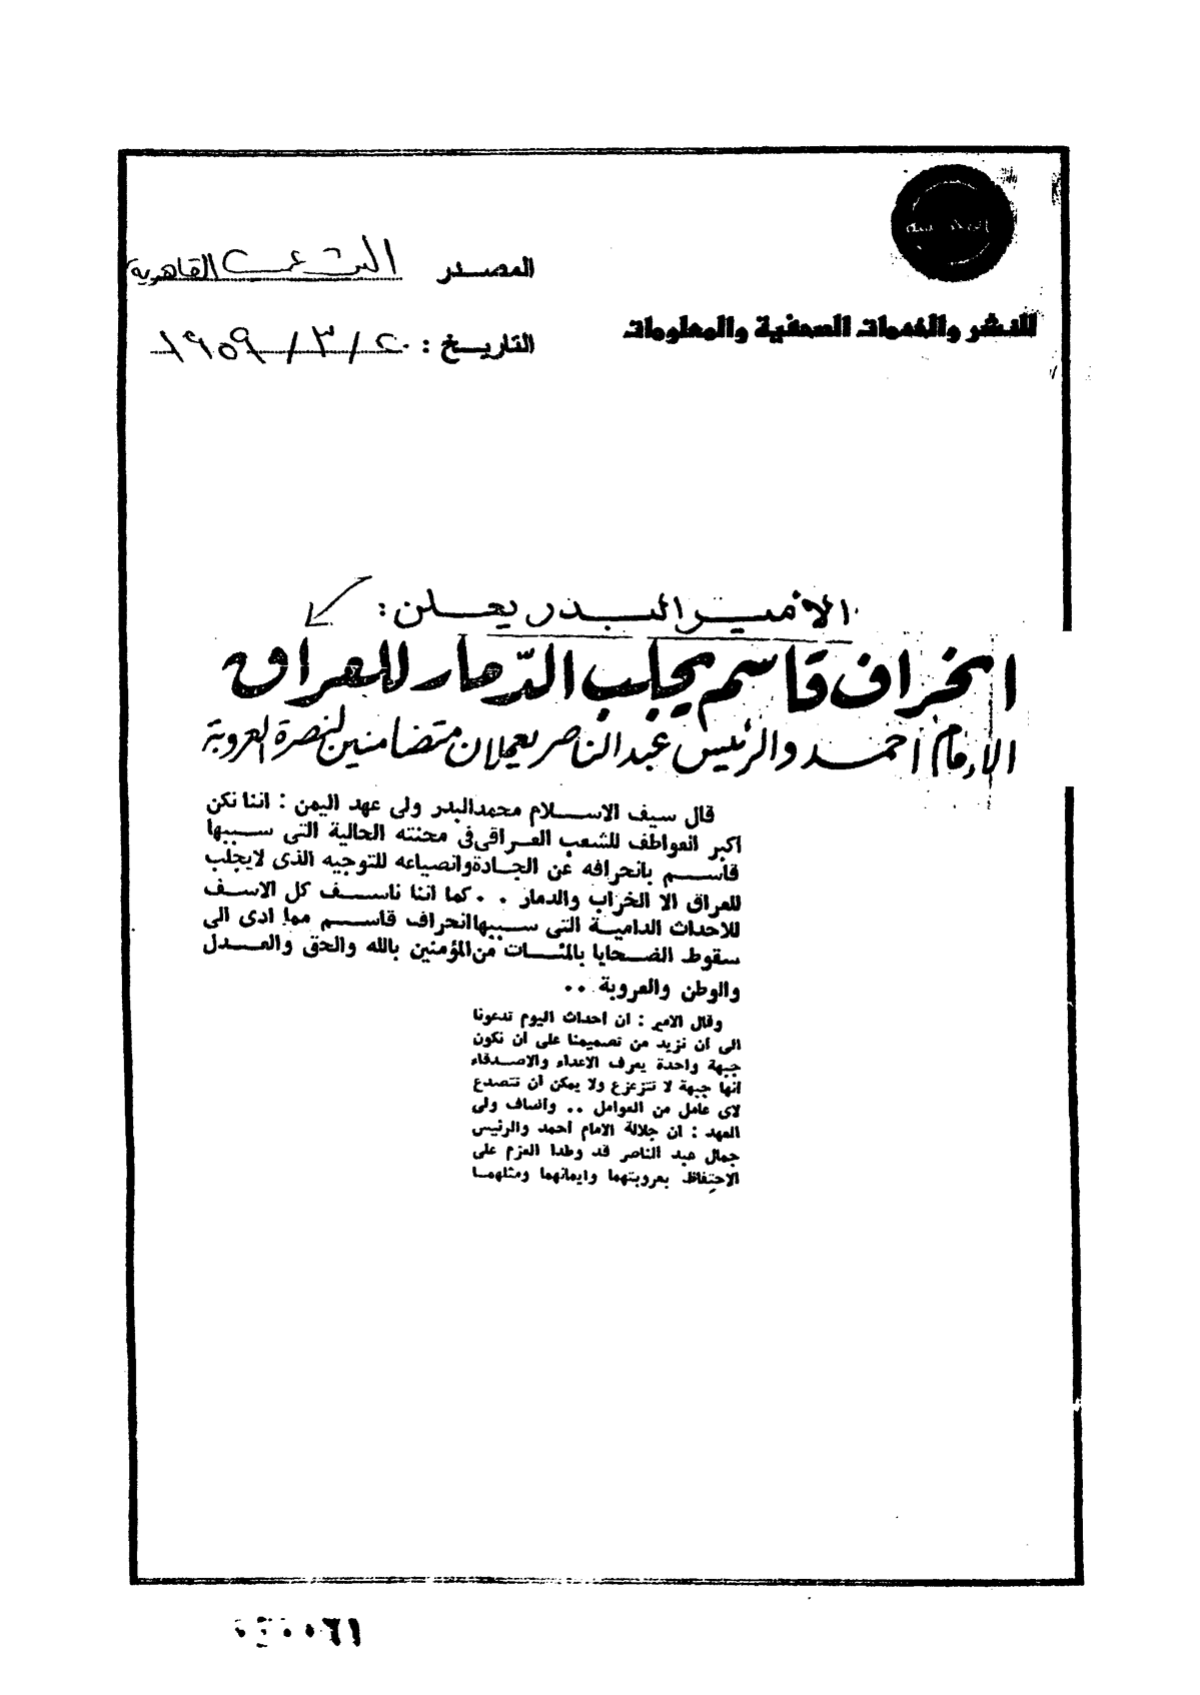 المصدر الشعب القاهرية
للنشر والخدمات الصحفية والمعلومات
التاريخ : ٢٠ / ٣ / ١٩٥٩
الأمير البدر يعلن :
انحراف قاسم يجلب الدّمار للعراق
الإمام أحمد والرئيس عبد الناصر يعملان متضامنين لنصرة العروبة
قال سيف الاسلام محمد البدر ولى عهد اليمن : اننا نكن
اكبر العواطف للشعب العراقى فى محنته الحالية التى سببها
قاسم بانحرافه عن الجادة وانصياعه للتوجيه الذى لايجلب
للعراق الا الخراب والدمار . . كما اننا ناسف كل الاسف
للاحداث الدامية التى سببها انحراف قاسم مما ادى الى
سقوط الضحايا بالمئات من المؤمنين بالله والحق والعدل
والوطن والعروبة . .
وقال الامير : ان احداث اليوم تدعونا
الى أن نزيد من تصميمنا على ان نكون
جبهة واحدة يعرف الاعداء والاصدقاء
انها جبهة لا تتزعزع ولا يمكن ان تتصدع
لاى عامل من العوامل . . واضاف ولى
العهد : ان جلالة الامام أحمد والرئيس
جمال عبد الناصر قد وطدا العزم على
الاحتفاظ بعروبتهما وايمانهما ومثلهما